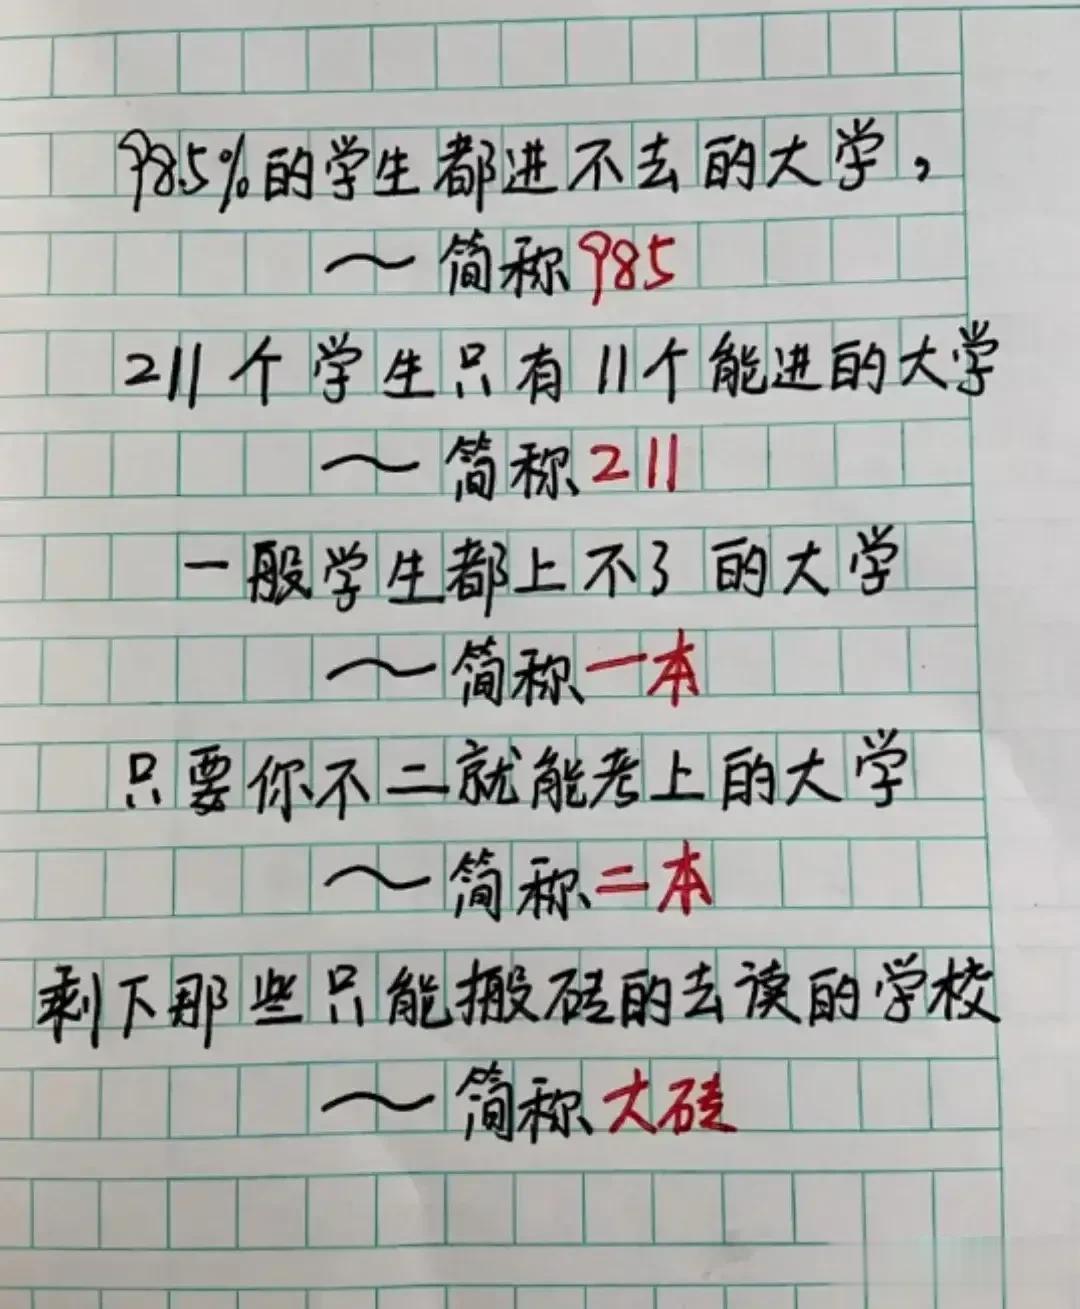 98.5%的学生都进不去的大学，
～简称985
211个学生只有11个能进的大学
～简称211
一般学生都上不了的大学
～简称一本
只要你不二就能考上的大学
～简称二本
剩下那些只能搬砖的去读的学校
～简称大砖